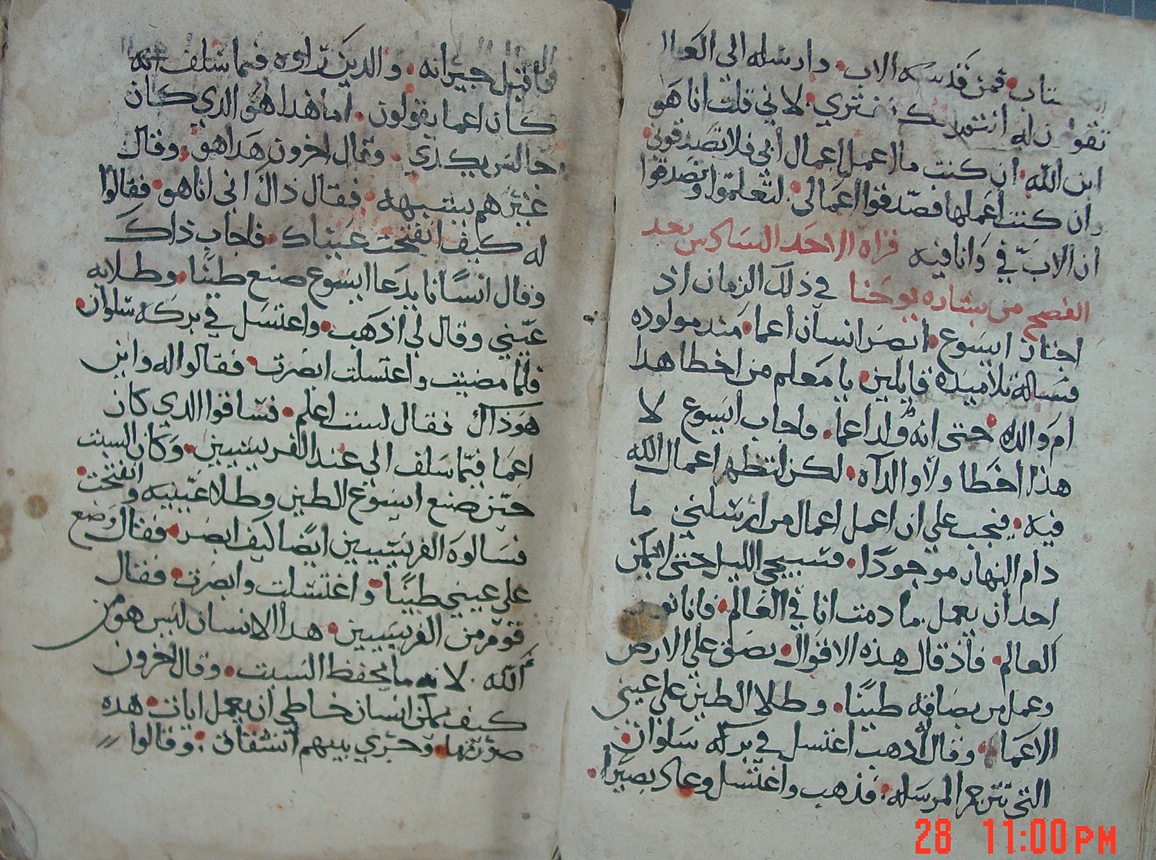 الكتاب فمن قدسه الاب وارسله الى العالم
تقولون له انت تفتري لاني قلت انا هو
ابن الله ان كنت ما اعمل اعمال ابي فلا تصدقوني
وان كنت اعملها فصدقوا اعمالي لتعلموا وتصدقوا
ان الاب في وانا فيه قراة الاحد السادس بعد
الفصح من بشارة يوحنا في ذلك الزمان اذ
اجتاز ايسوع ابصر انسان اعما منذ مولوده
فساله تلاميذه قايلين يا معلم من اخطا هذا
ام والداه حتى انه ولد اعما فاجاب ايسوع لا
هذا اخطا ولا والداه لكن لتظهر اعمال الله
فيه فيجب علي ان اعمل اعمال من ارسلني ما
دام النهار موجودا فسيجي الليل حتى لا يمكن
احد ان يعمل ما دمت انا في العالم فانا نور
العالم فاذ قال هذه الاقوال بصق على الارض
وعمل من بصاقه طينا وطلا الطين على عيني
الاعما وقال اذهب اغتسل في بركة سلوان
التي تترجم المرسله فذهب واغتسل وعاد بصيرا
جيرانه والذين راوه فيما سلف انه
كان اعما يقولون اما هذا هو الذي كان
جالس يكدي وقال اخرون هذا هو وقال
غيرهم يشبهه فقال ذاك اني انا هو فقالوا
له كيف انفتحت عيناك فاجاب ذاك
وقال انسانا يدعا ايسوع صنع طينا وطلا به
عيني وقال لي اذهب واغتسل في بركة سلوان
فلما مضيت واغتسلت ابصرت فقالوا له واين
هو ذاك فقال لست اعلم فساقوا الذي كان
اعما فيما سلف الى عند الفريسيين وكان السبت
حين صنع ايسوع الطين وطلا عينيه وانفتحت
فسالوه الفريسيين ايضا كيف ابصر فقال وضع
على عيني طينا واغتسلت وابصرت فقال
قوم من الفريسيين هذا الانسان ليس هو من
الله لانه ما يحفظ السبت وقال اخرون
كيف يمكن انسان خاطي ان يعمل ايات هذه
صورتها وجري بينهم انشقاق وقالوا
28 11:00 PM